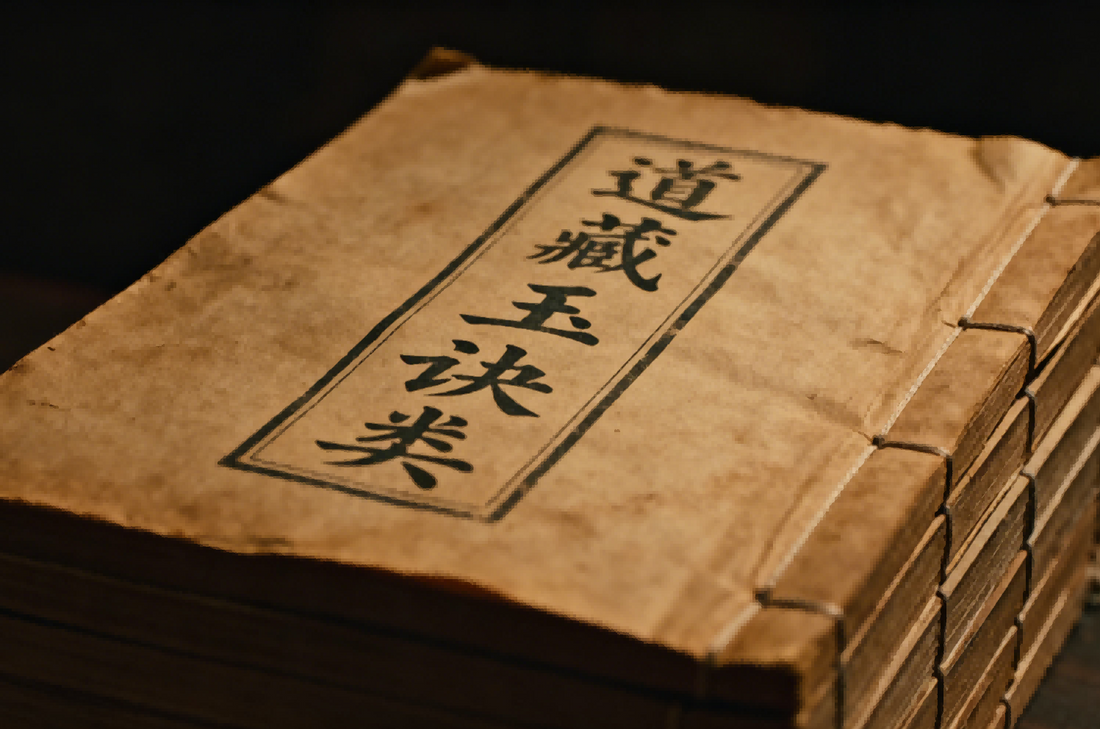 道藏玉诀类